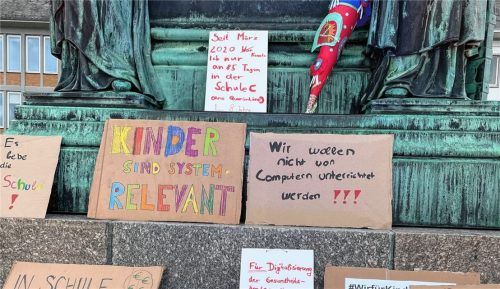 Seit März
2020 war
Ich nur
an 85 Tagen
in der
Schule
Es
lebe
die
Schule
!
KINDER
SIND SYSTEM-
RELEVANT
Wir wollen
nicht von
Computern unterrichtet
werden !!!
IN SCHULE
Für Digitalisierung
der Gesundheits-
#WirfürKind